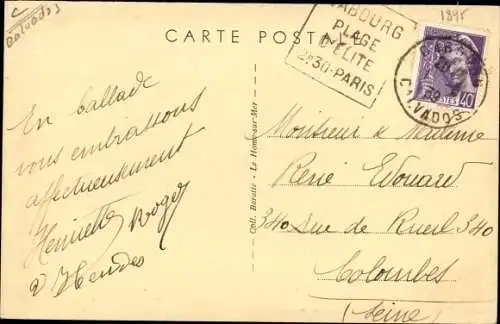 C
Calvados
1895
CARTE POSTALE
CABOURG
PLAGE
D'ELITE
2H30-PARIS
CALVADOS
POSTES 40
En ballade
vous embrassons
affectueusement
Henriette Roger
Coll. Baratte - Le Home-sur-Mer
Monsieur & Madame
René Edouard
340 Rue de Rueil 340
Colombes
(Seine)